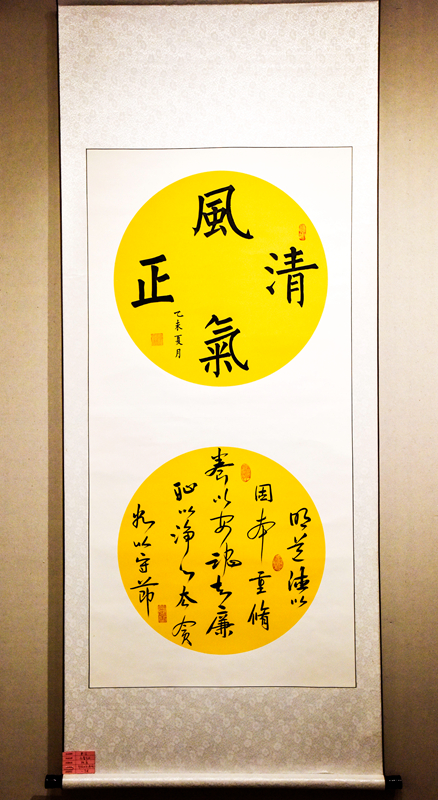 清
風
正
氣
乙未夏月
明道德以
固本重脩
養以安魂知廉
恥以淨心去貪
欲以守節